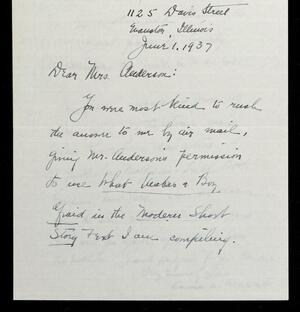 1125 Davis Street
Evanston, Illinois
June 1, 1937
Dear Mrs. Anderson:
You were most kind to rush
the answer to me by air mail,
giving Mr. Anderson's permission
to use What Makes a Boy
Afraid in the Modern Short
Story text I am compiling.